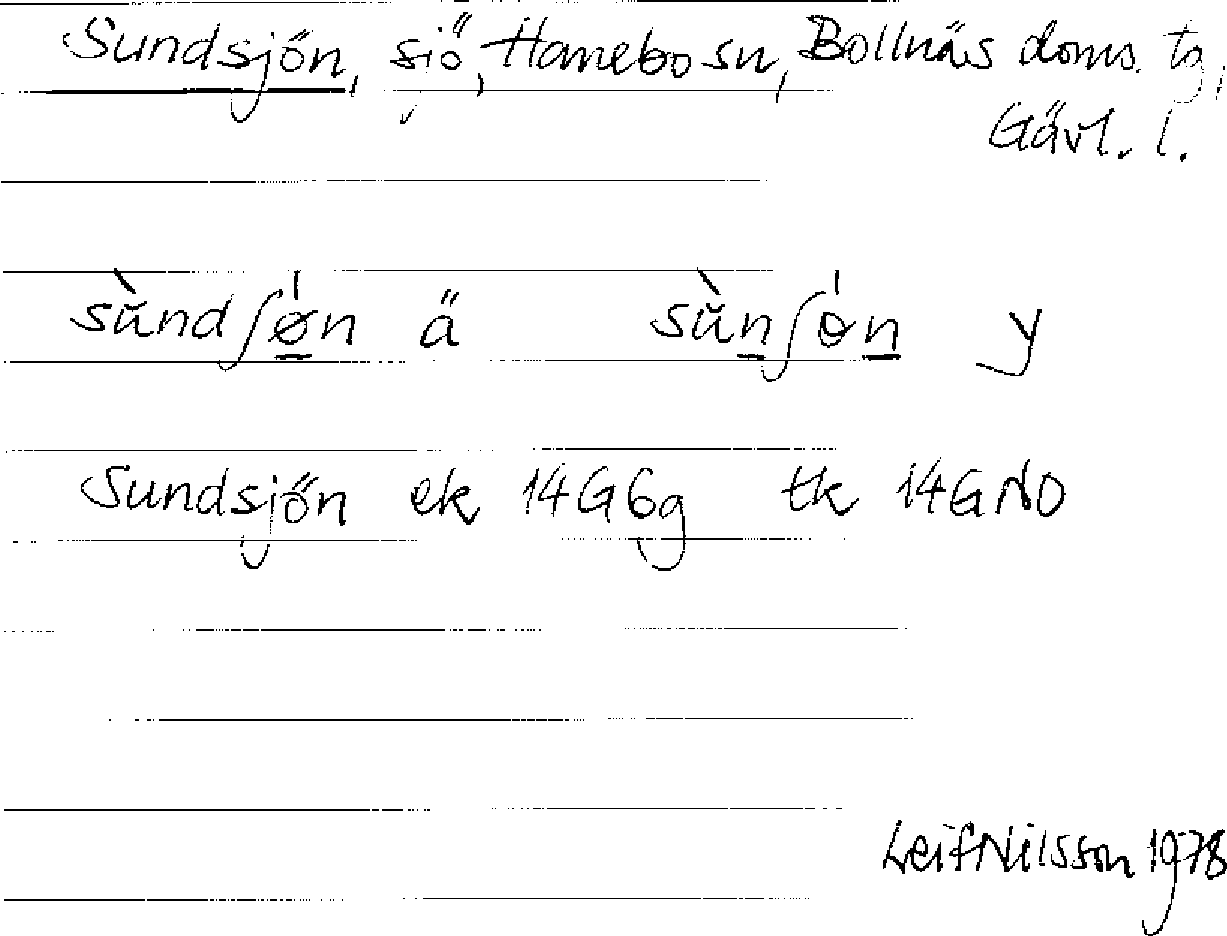 Sundsjön, sjö, Hanebo sn, Bollnäs doms. tg,
Gävl. l.
sùndʃøn ä sùnʃɵn y
Sundsjön ek 14G6g tk 14GNO
Leif Nilsson 1978